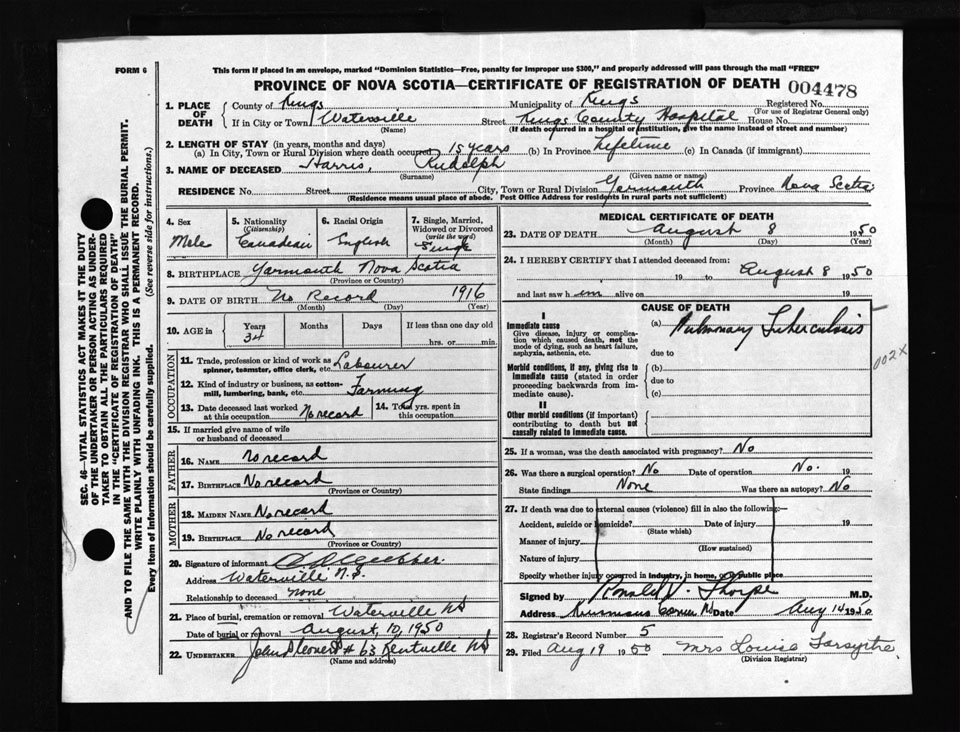 FORM 6
This form if placed in an envelope, marked "Dominion Statistics—Free, penalty for improper use $300," and properly addressed will pass through the mail "FREE"
PROVINCE OF NOVA SCOTIA—CERTIFICATE OF REGISTRATION OF DEATH 004478
1. PLACE OF DEATH
County of Kings Municipality of Kings Registered No.
(For use of Registrar General only)
If in City or Town Waterville Street Kings County Hospital House No.
(Name) (If death occurred in a hospital or institution, give the name instead of street and number)
2. LENGTH OF STAY (in years, months and days)
(a) In City, Town or Rural Division where death occurred 15 years (b) In Province Lifetime (c) In Canada (if immigrant)
3. NAME OF DECEASED Harris, Rudolph
(Surname) (Given name or names)
RESIDENCE No. Street City, Town or Rural Division Yarmouth Province Nova Scotia
(Residence means usual place of abode. Post Office Address for residents in rural parts not sufficient)
4. Sex
Male
5. Nationality
(Citizenship)
Canadian
6. Racial Origin
English
7. Single, Married, Widowed or Divorced
(write the word)
Single
8. BIRTHPLACE Yarmouth Nova Scotia
(Province or Country)
9. DATE OF BIRTH No Record 1916
(Month) (Day) (Year)
10. AGE in
Years Months Days If less than one day old
34 hrs. or min.
OCCUPATION
11. Trade, profession or kind of work as spinner, teamster, office clerk, etc. Labourer
12. Kind of industry or business, as cotton-mill, lumbering, bank, etc. Farming
13. Date deceased last worked at this occupation No record
14. Total yrs. spent in this occupation
15. If married give name of wife or husband of deceased
FATHER
16. NAME No record
17. BIRTHPLACE No record
(Province or Country)
MOTHER
18. MAIDEN NAME No record
19. BIRTHPLACE No record
(Province or Country)
20. Signature of informant
Address Waterville N.S.
Relationship to deceased None
21. Place of burial, cremation or removal Waterville NS
Date of burial or removal August, 10, 1950
22. UNDERTAKER # 63 Kentville NS
(Name and address)
MEDICAL CERTIFICATE OF DEATH
23. DATE OF DEATH August 8 1950
(Month) (Day) (Year)
24. I HEREBY CERTIFY that I attended deceased from:
19 to August 8 1950
and last saw him alive on 19
CAUSE OF DEATH
I
Immediate cause
Give disease, injury or complication which caused death, not the mode of dying, such as heart failure, asphyxia, asthenia, etc.
(a) Pulmonary Tuberculosis
due to
002X
Morbid conditions, if any, giving rise to immediate cause (stated in order proceeding backwards from immediate cause).
(b)
due to
(c)
II
Other morbid conditions (if important) contributing to death but not causally related to immediate cause.
25. If a woman, was the death associated with pregnancy? No
26. Was there a surgical operation? No Date of operation No. 19
State findings None Was there an autopsy? No
27. If death was due to external causes (violence) fill in also the following:—
Accident, suicide or homicide? Date of injury 19
(State which)
Manner of injury
(How sustained)
Nature of injury
Specify whether injury occurred in industry, in home, or public place
Signed by Ronald V. Thorpe M.D.
Address Date Aug 14 1950
28. Registrar's Record Number 5
29. Filed Aug 19 1950 Mrs Louise Forsythe
(Division Registrar)
SEC. 46—VITAL STATISTICS ACT MAKES IT THE DUTY
OF THE UNDERTAKER OR PERSON ACTING AS UNDER-
TAKER TO OBTAIN ALL THE PARTICULARS REQUIRED
IN THE "CERTIFICATE OF REGISTRATION OF DEATH"
AND TO FILE THE SAME WITH THE DIVISION REGISTRAR WHO SHALL ISSUE THE BURIAL PERMIT.
WRITE PLAINLY WITH UNFADING INK. THIS IS A PERMANENT RECORD.
Every item of information should be carefully supplied. (See reverse side for instructions.)